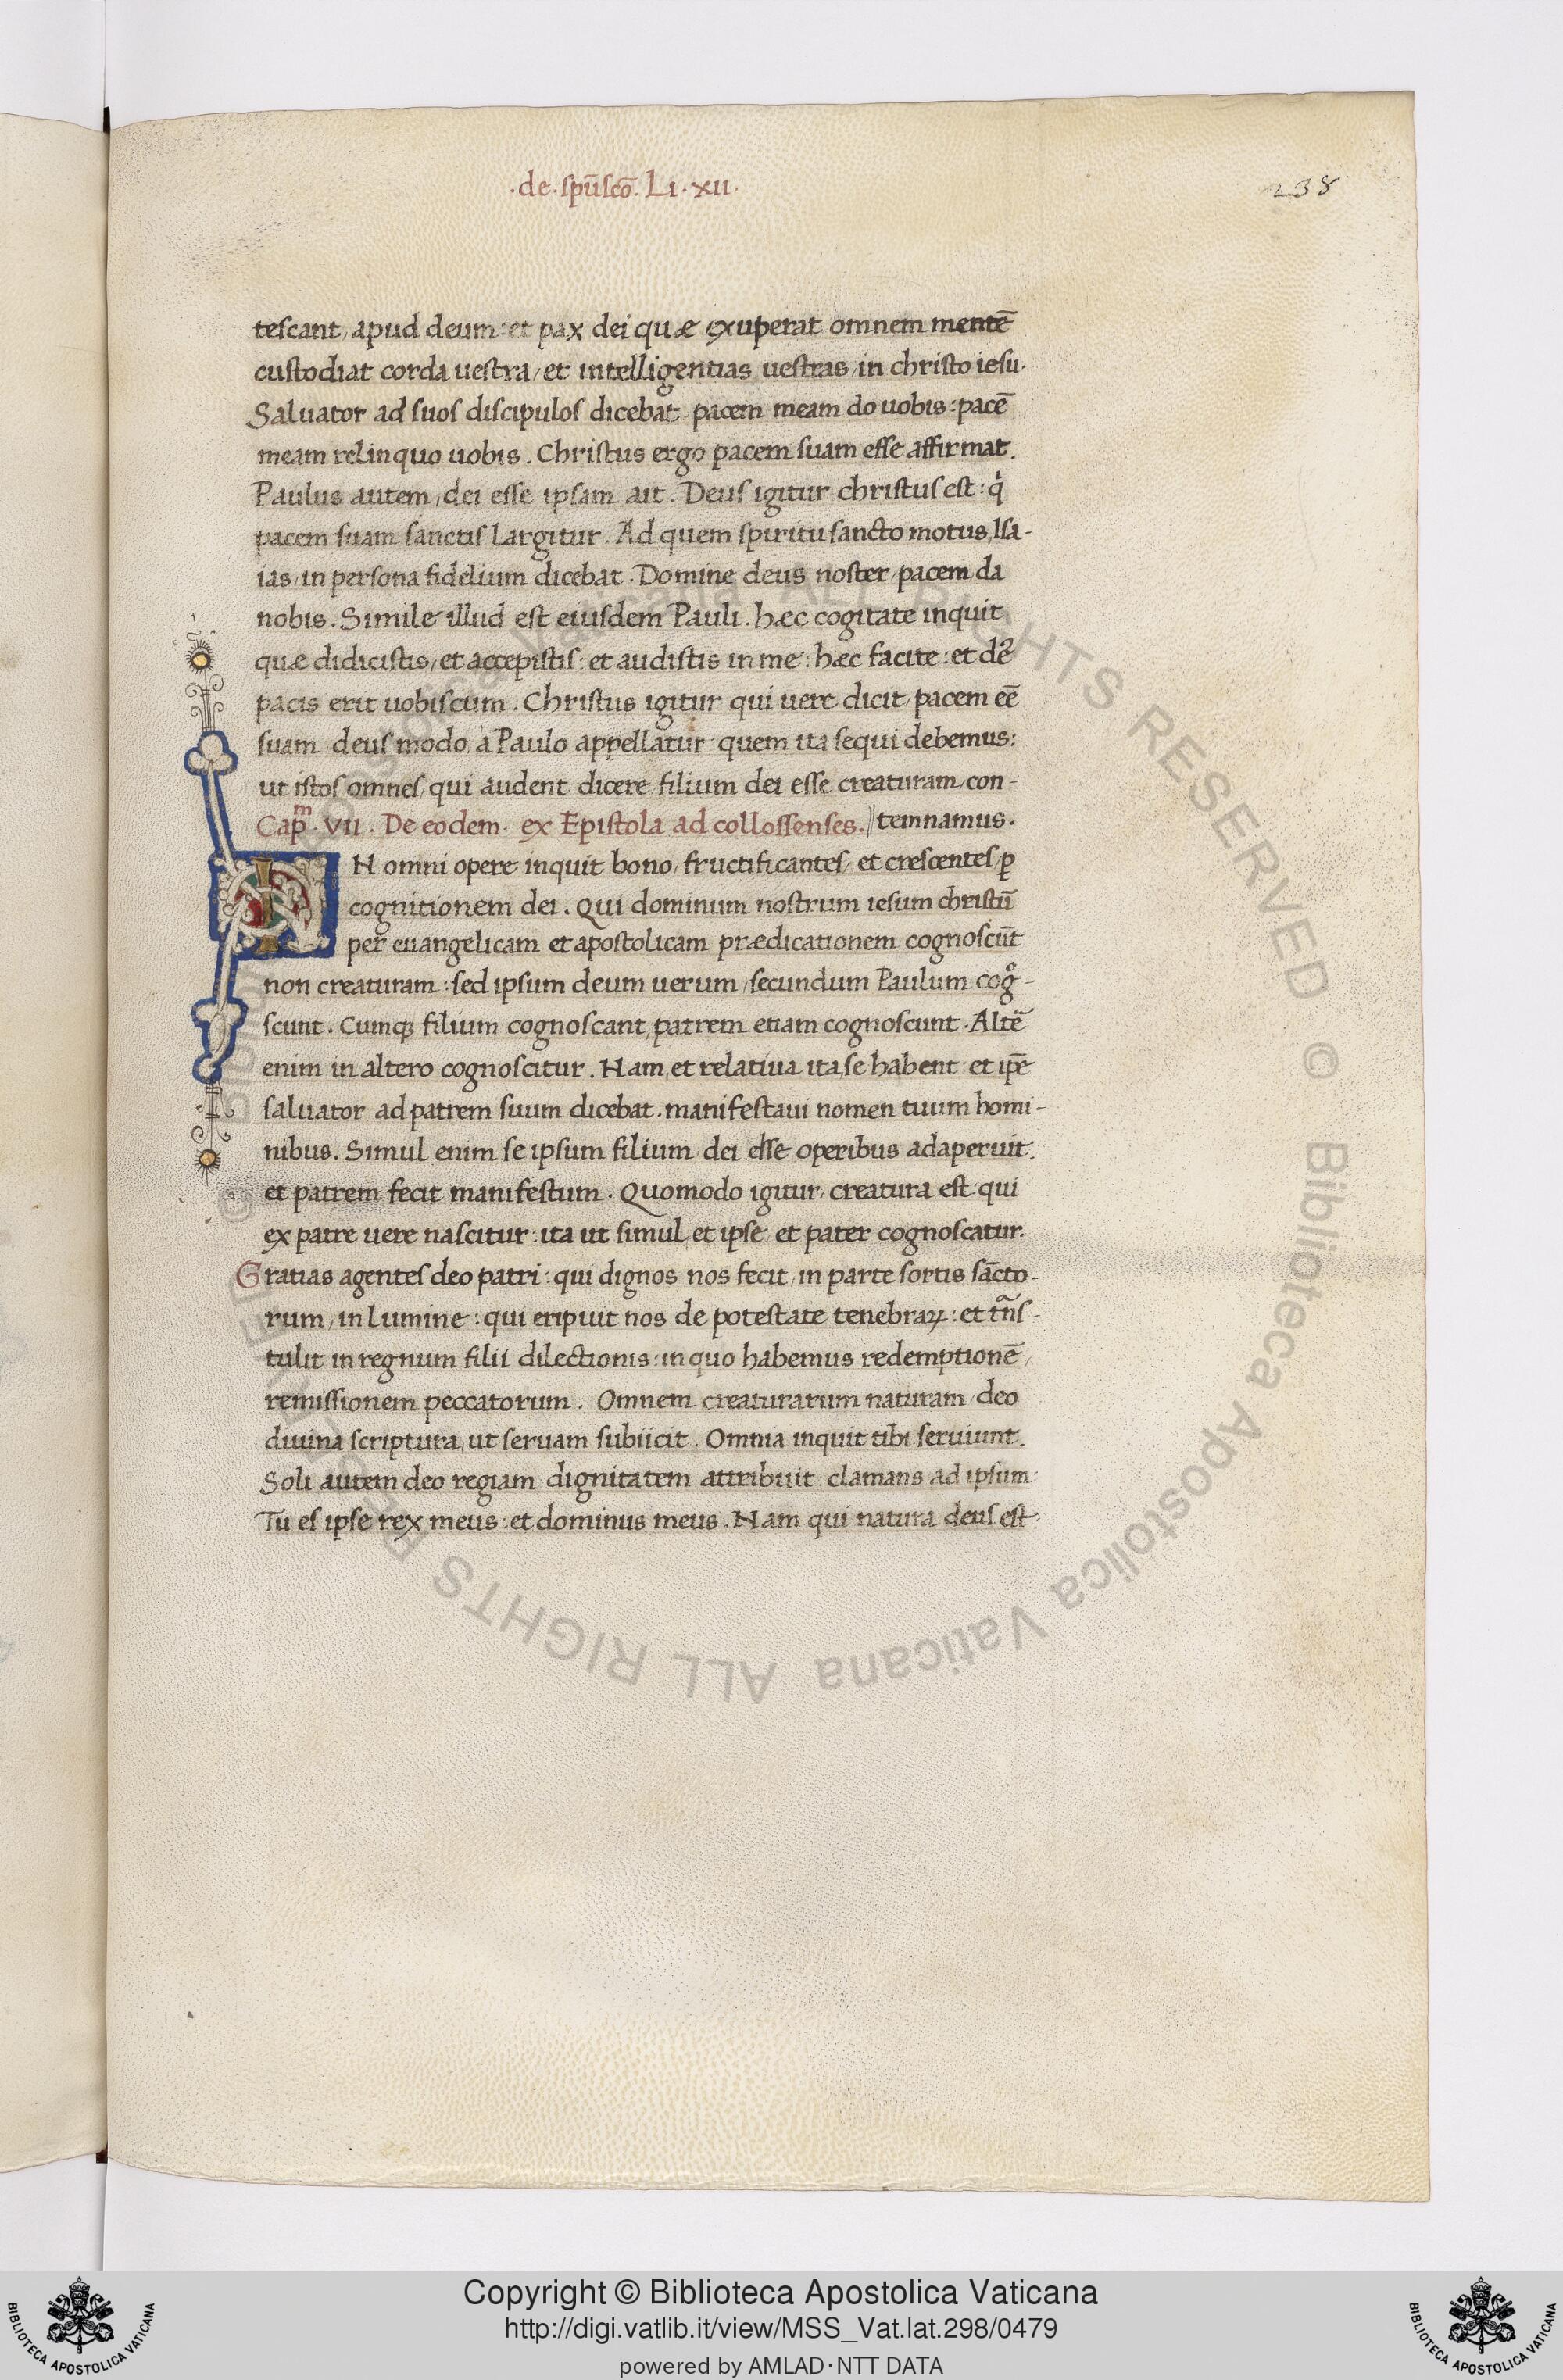 ·de·spūscō· Li·xii·
238
tescant, apud deum: et pax dei quæ exuperat omnem mentē
custodiat corda uestra, et intelligentias uestras, in christo iesu.
Saluator ad suos discipulos dicebat pacem meam do uobis: pacē
meam relinquo uobis. Christus ergo pacem suam esse affirmat.
Paulus autem, dei esse ipsam ait. Deus igitur christus est: qͥ
pacem suam sanctis Largitur. Ad quem spiritu sancto motus, Isa-
ias, in persona fidelium dicebat. Domine deus noster, pacem da
nobis. Simile illud est eiusdem Pauli. hæc cogitate inquit
quæ didicistis, et accepistis: et audistis in me: hæc facite: et de᷒
pacis erit uobiscum. Christus igitur qui uere dicit, pacem eē
suam deus modo, a Paulo appellatur quem ita sequi debemus:
ut istos omnes, qui audent dicere filium dei esse creaturam, con-
Capᵐ. VII. De eodem. ex Epistola ad collossenses. temnamus.
IN omni opere inquit bono, fructificantes, et crescentes, ꝑ
cognitionem dei. Qui dominum nostrum iesum christū
per euangelicam et apostolicam prædicationem cognoscūt
non creaturam: sed ipsum deum uerum, secundum Paulum cogͦ-
scunt. Cumqꝫ filium cognoscant, patrem etiam cognoscunt. Altē
enim in altero cognoscitur. Nam, et relatiua ita, se habent: et ip̄e
saluator ad patrem suum dicebat. manifestaui nomen tuum homi-
nibus. Simul enim se ipsum filium dei esse operibus adaperuit:
et patrem fecit manifestum. Quomodo igitur, creatura est: qui
ex patre uere nascitur: ita ut simul, et ipse, et pater cognoscatur.
Gratias agentes deo patri: qui dignos nos fecit, in parte sortis sācto-
rum, in Lumine: qui eripuit nos de potestate tenebraꝝ: et tᷓns-
tulit in regnum filii dilectionis: in quo habemus redemptionē,
remissionem peccatorum. Omnem creaturarum naturam, deo
diuina scriptura, ut seruam subiicit. Omnia inquit tibi seruiunt.
Soli autem deo regiam dignitatem attribuit: clamans ad ipsum:
Tu es ipse rex meus: et dominus meus. Nam qui natura deus est:
© Biblioteca Apostolica Vaticana ALL RIGHTS RESERVED © Biblioteca Apostolica Vaticana ALL RIGHTS RESERVED
Copyright © Biblioteca Apostolica Vaticana
http://digi.vatlib.it/view/MSS_Vat.lat.298/0479
powered by AMLAD·NTT DATA
BIBLIOTECA APOSTOLICA VATICANA
BIBLIOTECA APOSTOLICA VATICANA